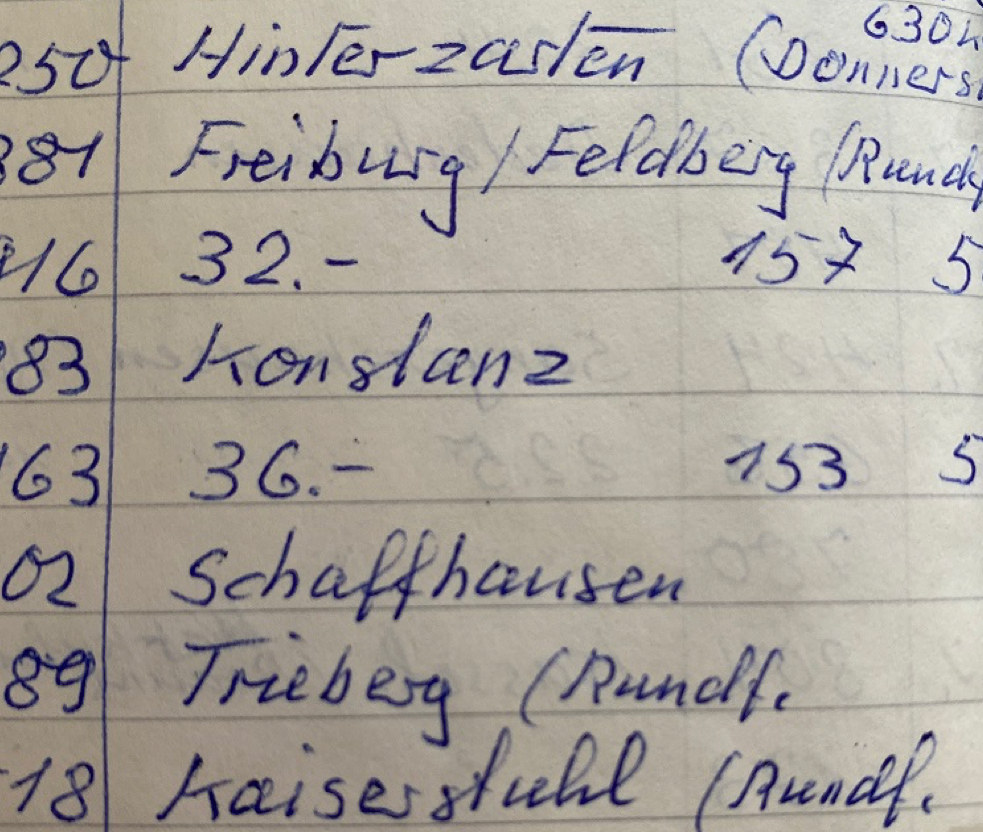 250 Hinterzarten (Donners
881 Freiburg/Feldberg (Rundf
916 32.- 157 5
83 Konstanz
163 36.- 153 5
02 Schaffhausen
89 Trieberg (Rundf.
18 Kaiserstuhl (Rundf.